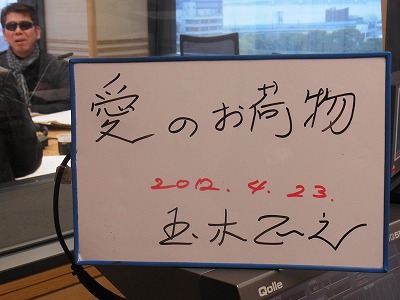 愛のお荷物
2012.4.23.
玉木
Qolle